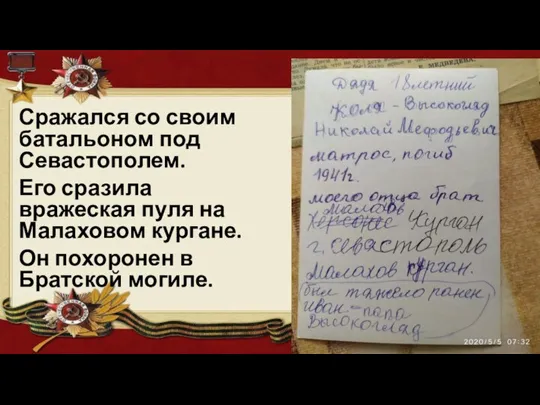 Сражался со своим
батальоном под
Севастополем.
Его сразила
вражеская пуля на
Малаховом кургане.
Он похоронен в
Братской могиле.
Дядя 18летний
Коля - Высокогляд
Николай Мефодьевич
матрос, погиб
1941г.
моего отца брат
Малахов
Курган
г. Севастополь
Малахов курган.
был тяжело ранен
Иван - папа
Высокогляд
2020/5/5 07:32